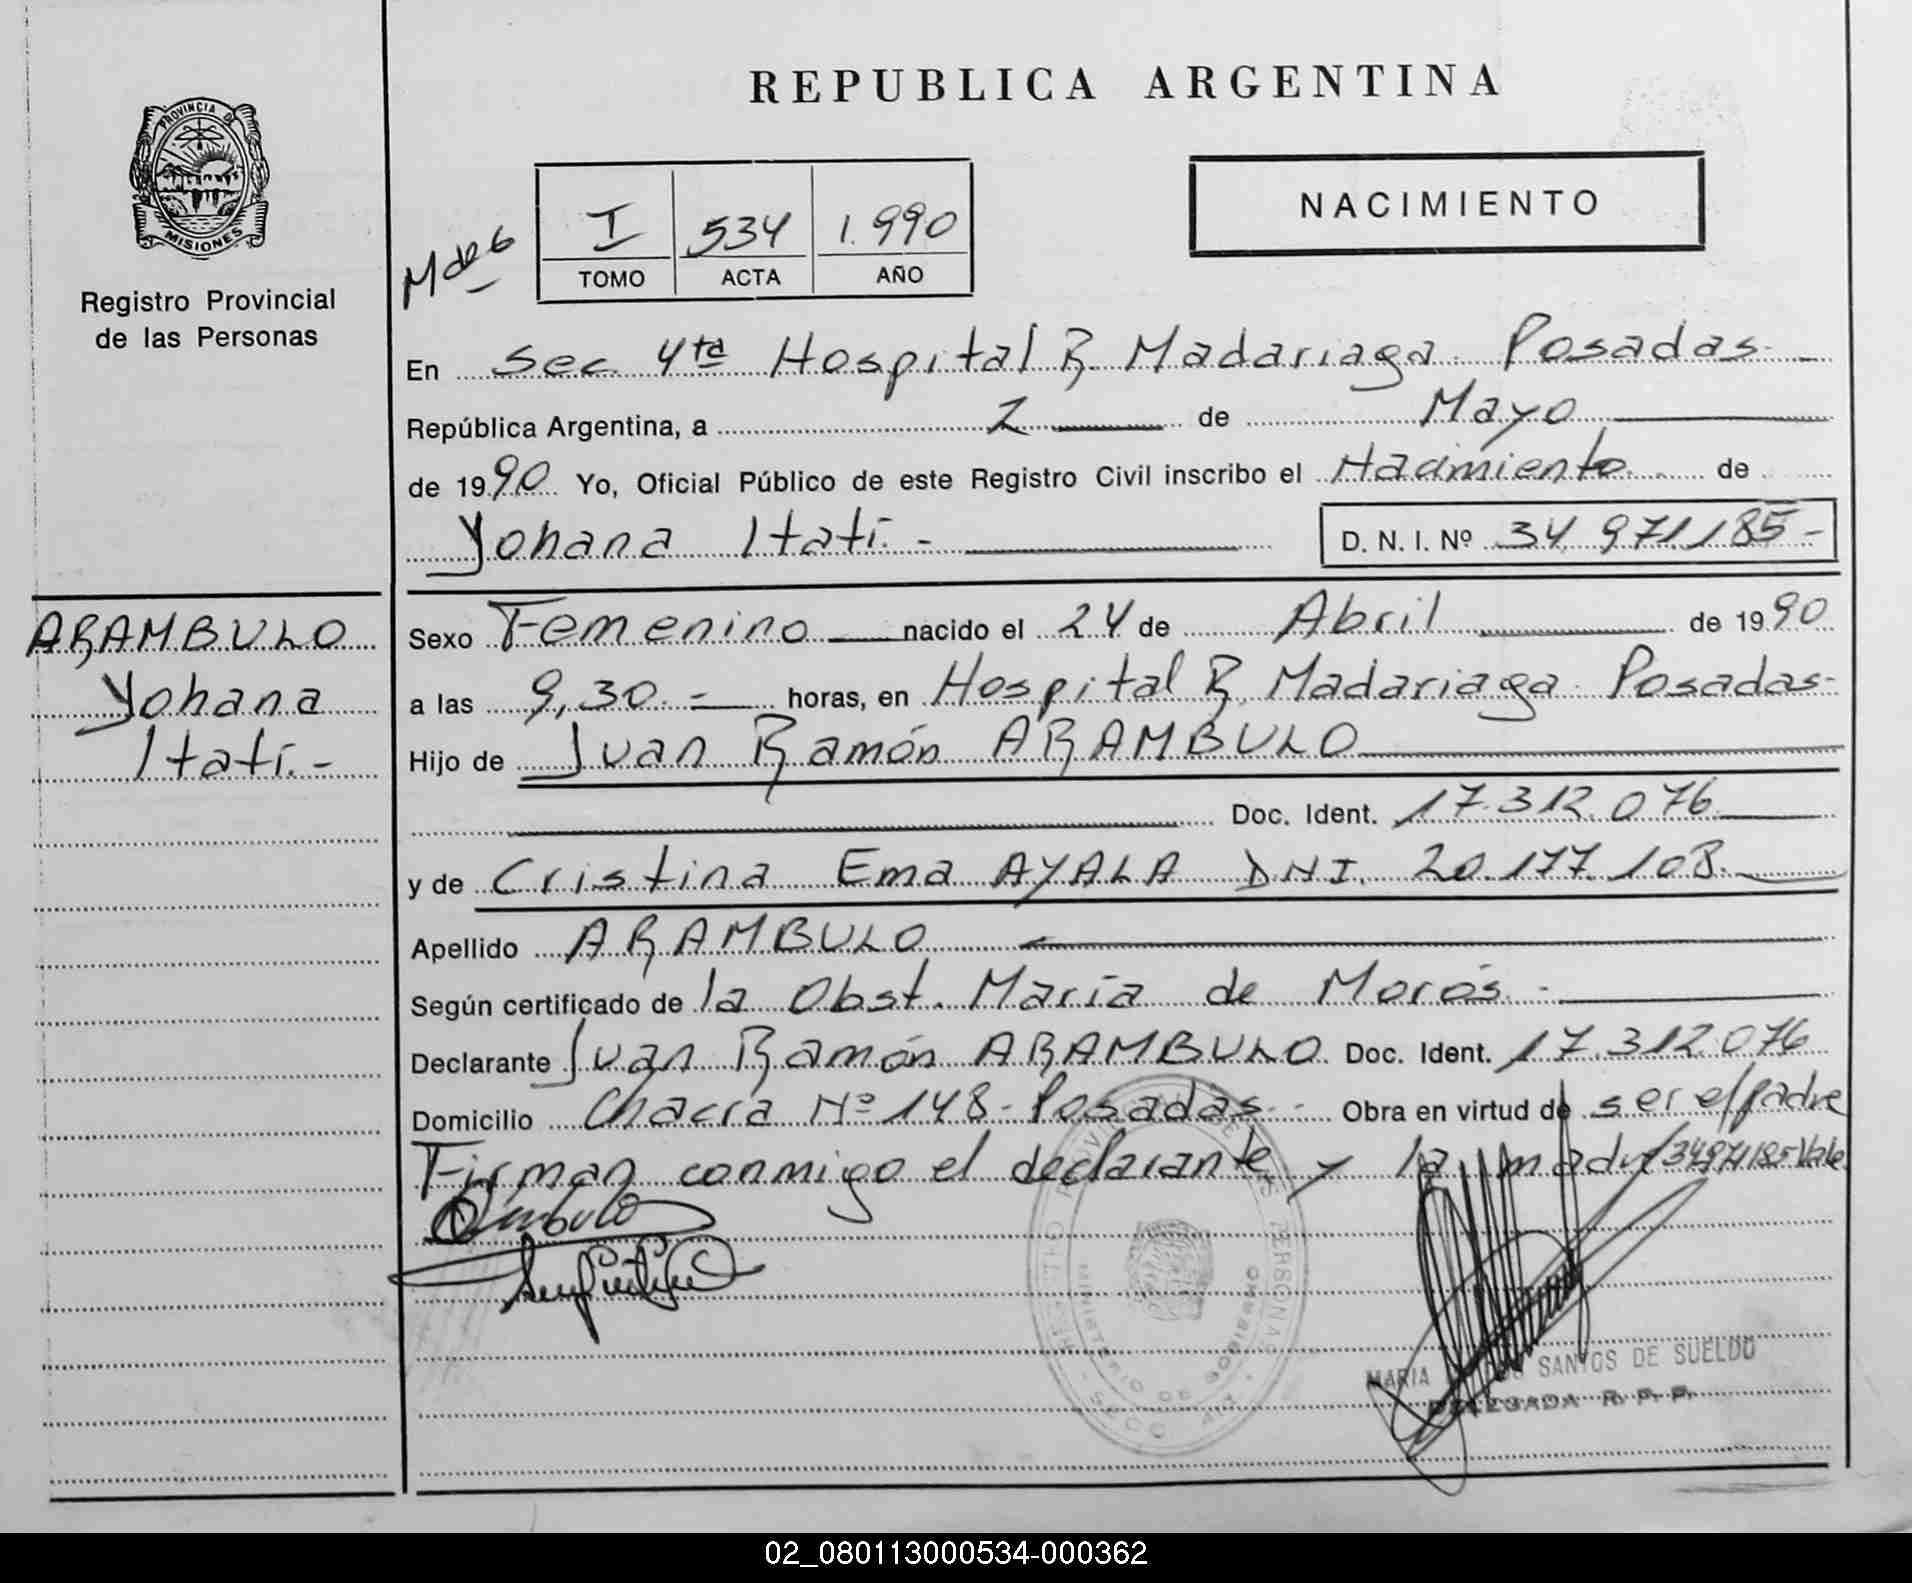 REPUBLICA ARGENTINA
PROVINCIA DE
MISIONES
Registro Provincial
de las Personas
NACIMIENTO
I 534 1.990
TOMO ACTA AÑO
En Sec. 4ta Hospital R. Madariaga. Posadas.
República Argentina, a 2 de Mayo
de 1990 Yo, Oficial Público de este Registro Civil inscribo el Nacimiento de
Yohana Itatí.-
D. N. I. Nº 34.971.185-
ARAMBULO
Yohana
Itatí.-
Sexo Femenino nacido el 24 de Abril de 1990
a las 9,30.= horas, en Hospital R. Madariaga. Posadas-
Hijo de Juan Ramón ARAMBULO
Doc. Ident. 17.312.076
y de Cristina Ema AYALA DNI. 20.177.108.
Apellido ARAMBULO
Según certificado de la Obst. María de Morós.-
Declarante Juan Ramón ARAMBULO Doc. Ident. 17.312.076
Domicilio Chacra Nº 148-Posadas.- Obra en virtud de ser el padre
Firman conmigo el declarante y la madre/34971185-Vale
MINISTERIO DE GOBIERNO
MARIA SANTOS DE SUELDO
DELEGADA R. P. P.
02_080113000534-000362